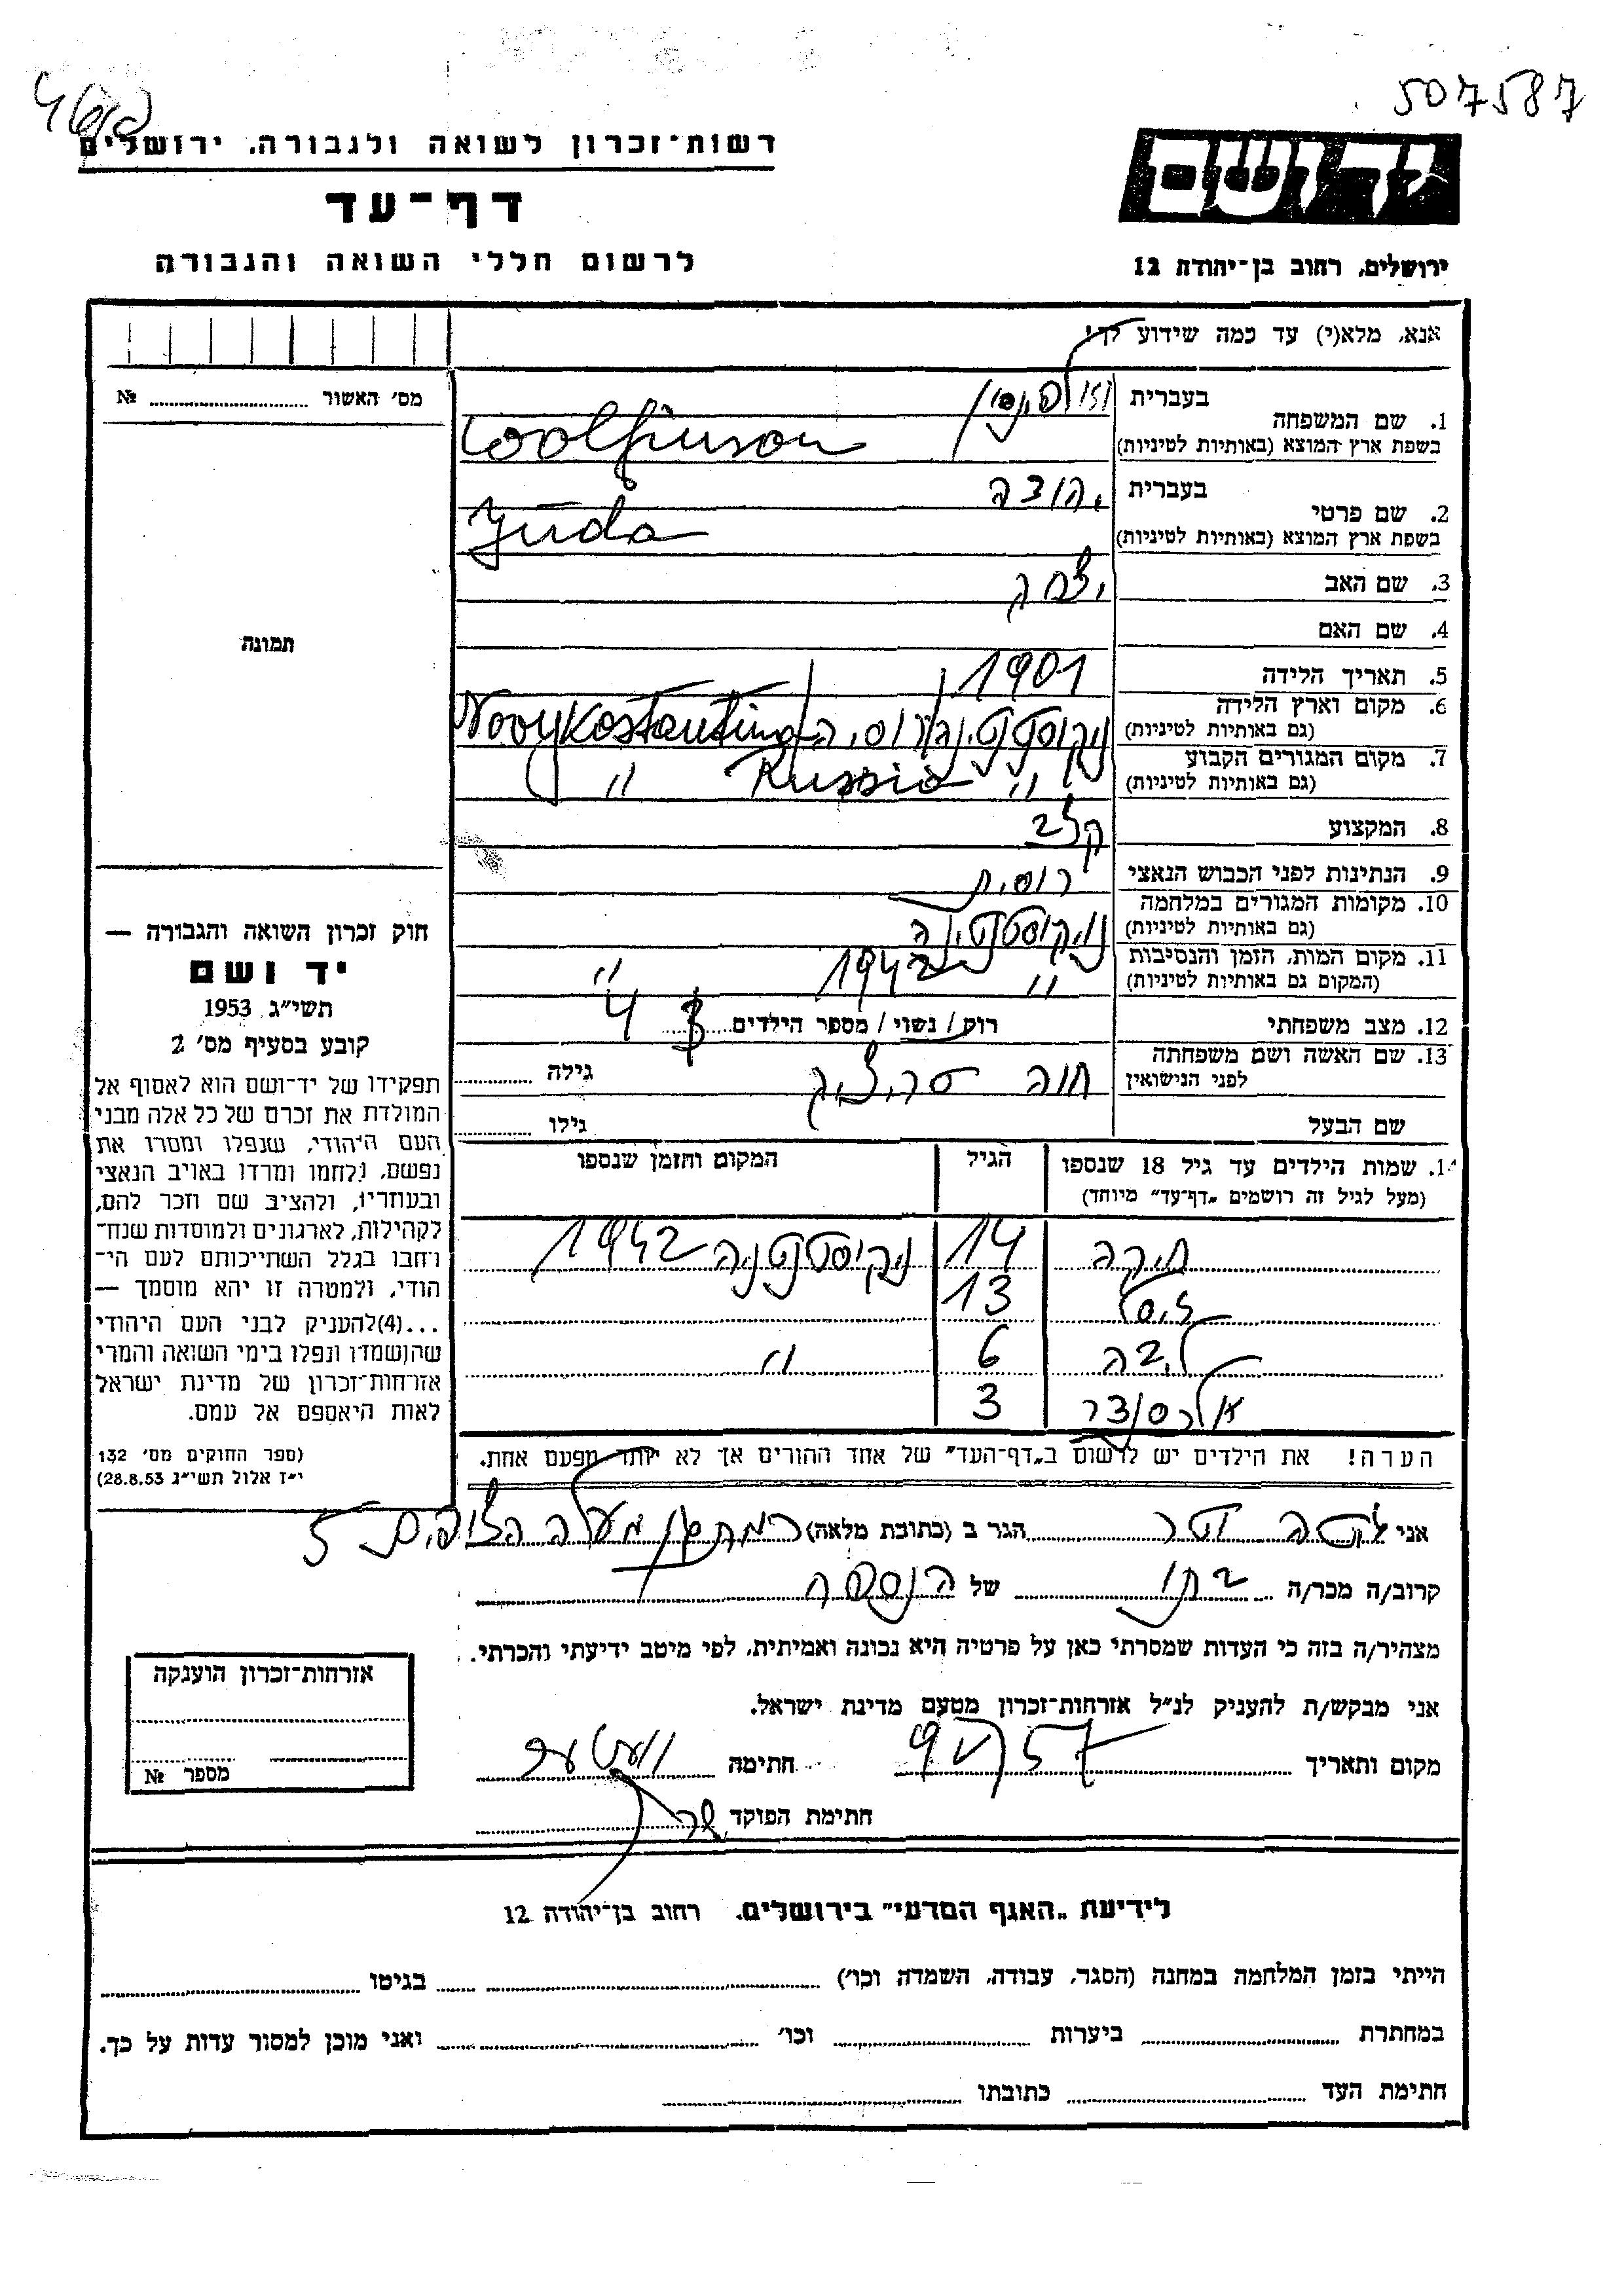 507587
רשות־זכרון לשואה ולגבורה. ירושלים
דף־עד
לרשום חללי השואה והגבורה
יד ושם
ירושלים, רחוב בן־יהודה 12
אנא, מלא(י) עד כמה שידוע לך!
מס' האשור № 
1. שם המשפחה בעברית וולפינסון
בשפת ארץ המוצא (באותיות לטיניות) Woolfinson
2. שם פרטי בעברית יהודה
בשפת ארץ המוצא (באותיות לטיניות) Juda
3. שם האב יצחק
4. שם האם
תמונה
5. תאריך הלידה 1901
6. מקום וארץ הלידה
(גם באותיות לטיניות) רוסיה Novy Kostantina
7. מקום המגורים הקבוע
(גם באותיות לטיניות) " Russia "
8. המקצוע קצב
9. הנתינות לפני הכבוש הנאצי רוסית
10. מקומות המגורים במלחמה
(גם באותיות לטיניות) ניקוסטנטינה
11. מקום המות, הזמן והנסיבות
(המקום גם באותיות לטיניות) " 1942 "
12. מצב משפחתי רוק / נשוי / מספר הילדים 4
13. שם האשה ושם משפחתה
לפני הנישואין חוה גילה
שם הבעל גילו
14. שמות הילדים עד גיל 18 שנספו הגיל המקום והזמן שנספו
(מעל לגיל זה רושמים „דף־עד" מיוחד)
חיקה 14 ניקוסטנטינה 1942
13
ליבה 6 "
אלכסנדר 3
הערה! את הילדים יש לרשום ב„דף־העד" של אחד ההורים אך לא יותר מפעם אחת.
חוק זכרון השואה והגבורה —
יד ושם
תשי״ג 1953
קובע בסעיף מס' 2
תפקידו של יד־ושם הוא לאסוף אל
המולדת את זכרם של כל אלה מבני
העם היהודי, שנפלו ומסרו את
נפשם, נלחמו ומרדו באויב הנאצי
ובעוזריו, ולהציב שם וזכר להם,
לקהילות, לארגונים ולמוסדות שנח־
רחבו בגלל השתייכותם לעם הי־
הודי, ולמטרה זו יהא מוסמך —
...(4) להעניק לבני העם היהודי
שהושמדו ונפלו בימי השואה והמרי
אזרחות־זכרון של מדינת ישראל
לאות היאספם אל עמם.
(ספר החוקים מס' 132
י״ז אלול תשי״ג 28.8.53)
אני הגר ב (כתובת מלאה) רמת גן מעלה הצופים 5
קרוב/ה מכר/ה בתו של הנספה
מצהיר/ה בזה כי העדות שמסרתי כאן על פרטיה היא נכונה ואמיתית, לפי מיטב ידיעתי והכרתי.
אני מבקש/ת להעניק לנ״ל אזרחות־זכרון מטעם מדינת ישראל.
מקום ותאריך חתימה
חתימת הפוקד
אזרחות־זכרון הוענקה
מספר №
לידיעת „האגף המדעי" בירושלים. רחוב בן־יהודה 12
הייתי בזמן המלחמה במחנה (הסגר, עבודה, השמדה וכו') בגיטו
במחתרת ביערות וכו' ואני מוכן למסור עדות על כך.
חתימת העד כתובתו